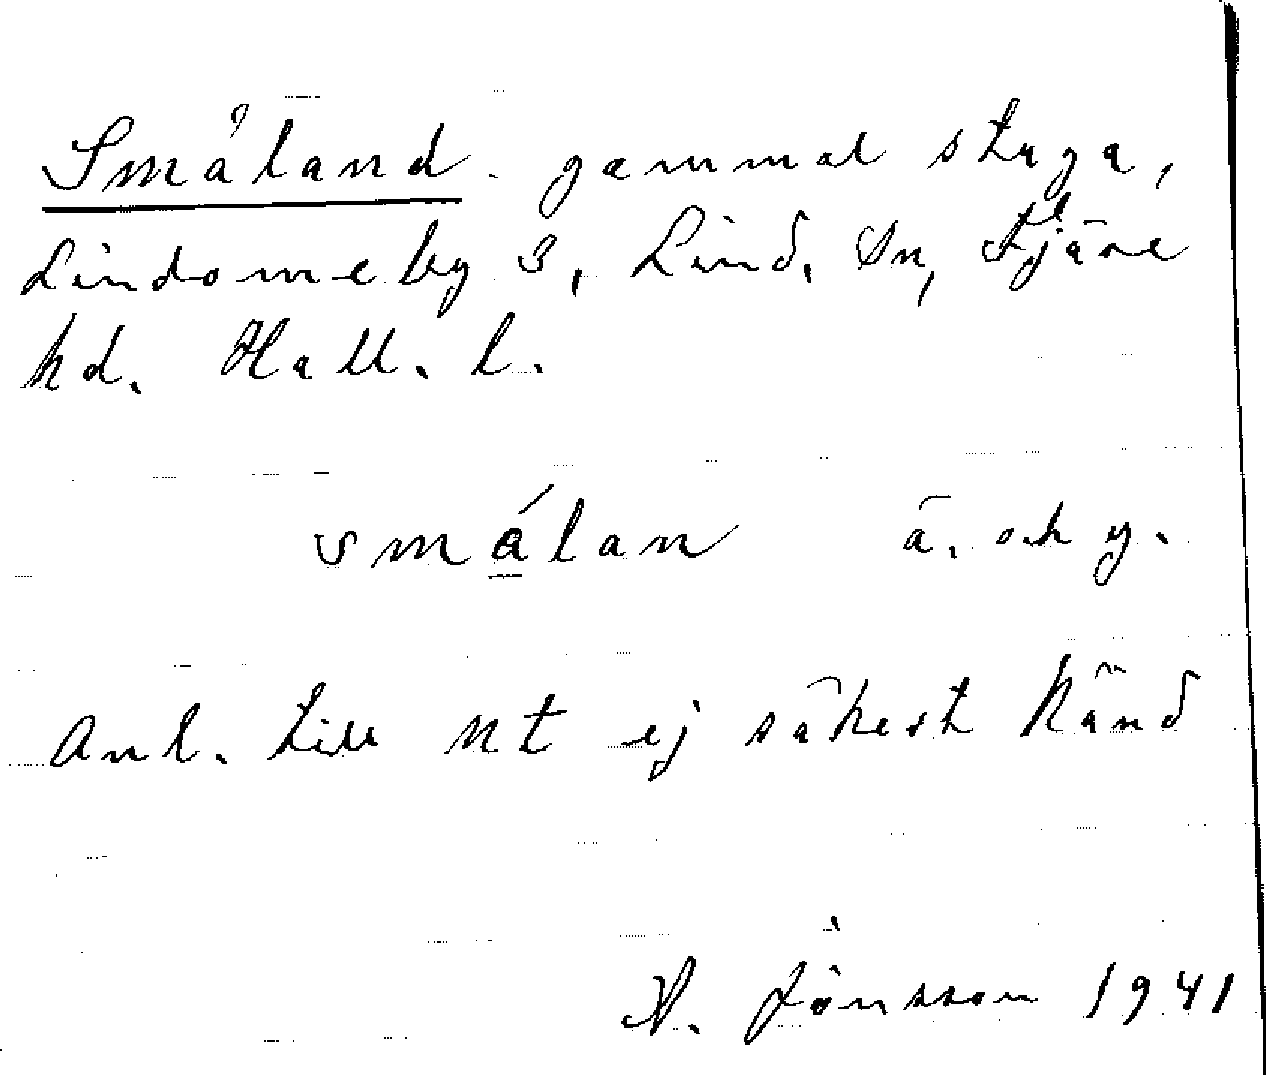 Småland. gammal stuga,
Lindome by 3, Lind. sn, Fjäre
hd. Hall. l.
smålan ä. och y.
Anl. till nt ej säkert känd
N. Jönsson 1941